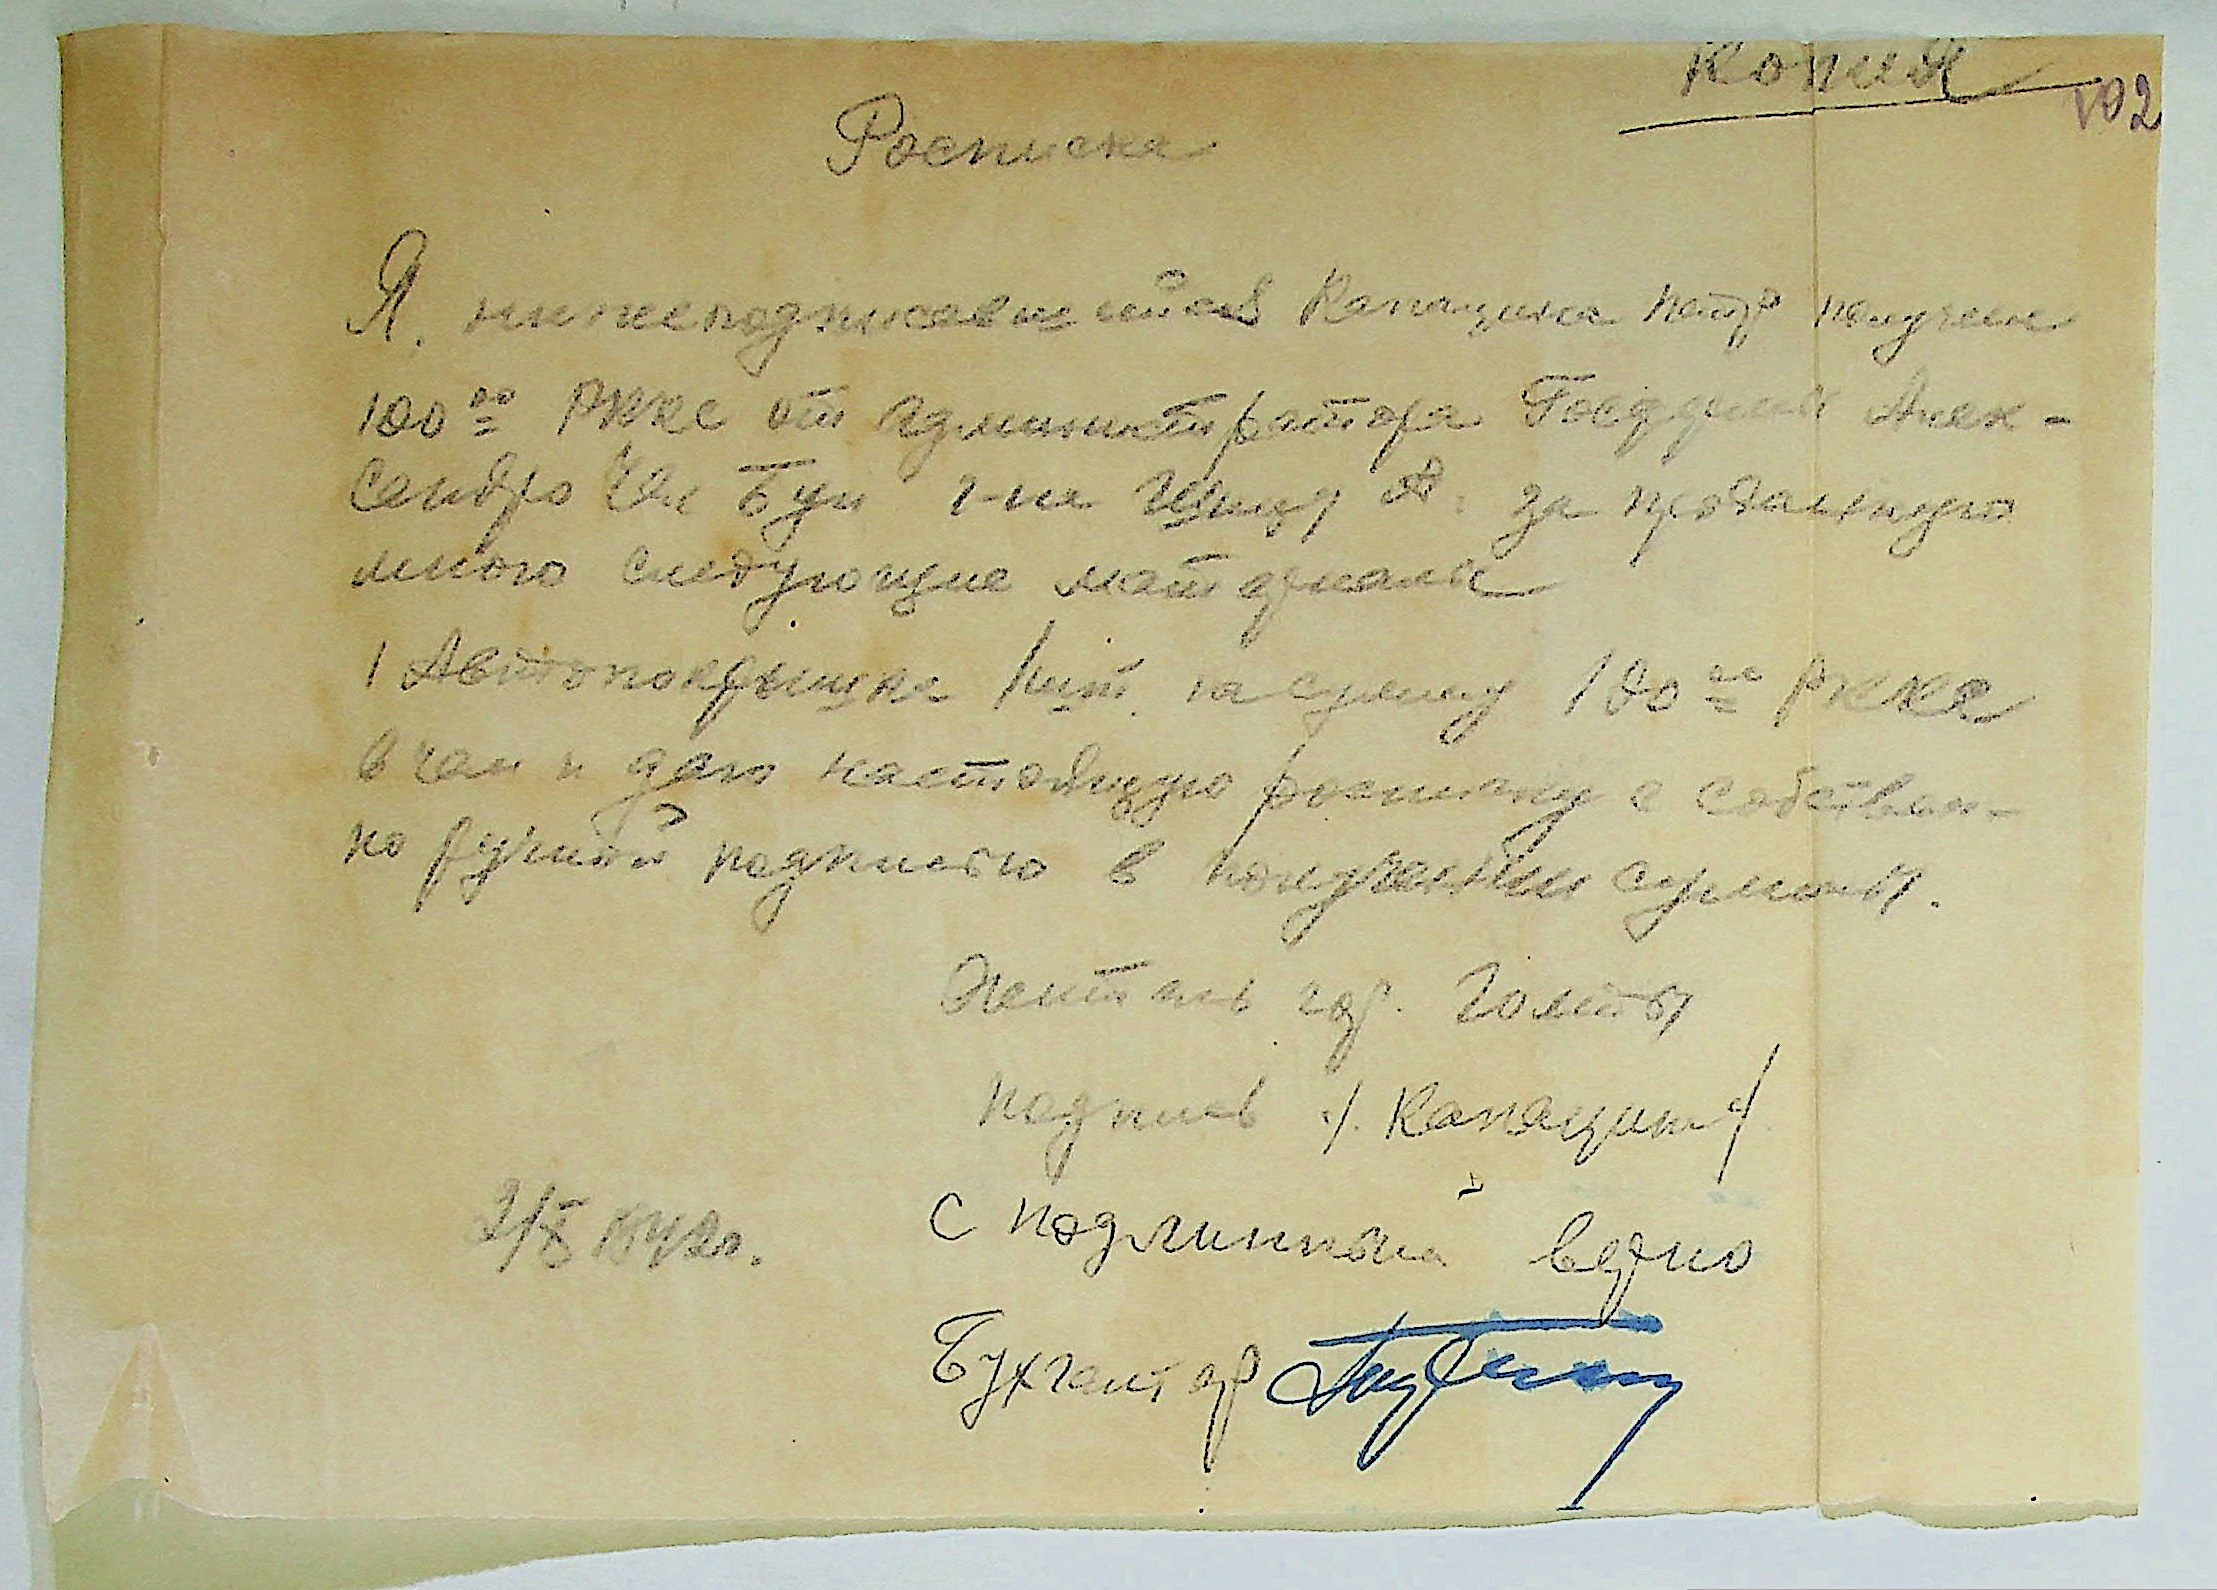 Копия
102
Росписка
Я. нижеподписавшийся Капацина Петр получил
100 00 РККС от администратора Госфермы Алек-
сандро Чел Бун г-на за проданную
мною следующие материалы
1 Автопокрышка 1 шт. на сумму 100 00 РККС
в чем и даю настоящую росписку с собствен-
но ручной подписью в получении суммы.
Житель гор. Голты
подпись ./. Капацина/
2/X 1942 г. С подлинной верно
Бухгалтер